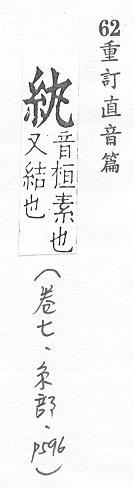 62重訂直音篇
紈
音桓素也
又結也
（卷七、糸部、P596）